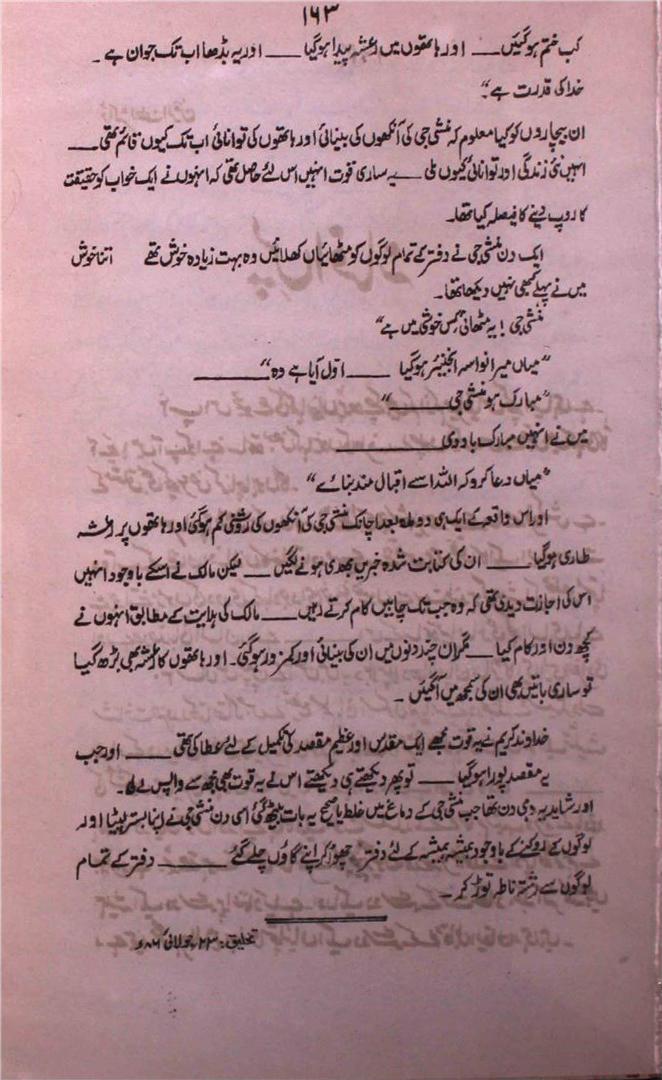 ۱۶۳
کب ختم ہوگئیں ــــ اور ہاتھوں میں رعشہ پیدا ہوگیا ــــ اور یہ بڈھا اب تک جوان ہے ۔
خدا کی قدرت ہے ۔"
ان بیچاروں کو کیا معلوم کہ منشی جی کی آنکھوں کی بینائی اور ہاتھوں کی توانائی اب تک کیوں قائم تھی ــــ
انہیں نئی زندگی اور توانائی کیوں ملی ــــ یہ ساری قوت انہیں اس لئے حاصل تھی کہ انہوں نے ایک خواب کو حقیقت
کا روپ دینے کا فیصلہ کیا تھا۔
ایک دن منشی جی نے دفتر کے تمام لوگوں کو مٹھائیاں کھلائیں وہ بہت زیادہ خوش تھے اتنا خوش
میں نے پہلے کبھی نہیں دیکھا تھا۔
"منشی جی ! یہ مٹھائی کس خوشی میں ہے"
"میاں میرا نواسہ انجینئر ہوگیا ــــ اول آیا ہے وہ" ــــــــ
"مبارک ہو منشی جی ــــــــ"
میں نے انہیں مبارک باد دی ــــــــ
"میاں دعا کرو کہ اللہ اسے اقبال مند بنائے"
اور اس واقعہ کے ایک ہی دو ماہ بعد اچانک منشی جی کی آنکھوں کی روشنی کم ہوگئی اور ہاتھوں پر رعشہ
طاری ہوگیا ــــــــ ان کی کتابت شدہ خبریں بھدی ہونے لگیں ــــ لیکن مالک نے اسکے باوجود انہیں
اس کی اجازت دیدی تھی کہ وہ جب تک چاہیں کام کرتے رہیں ــــ مالک کی ہدایت کے مطابق انہوں نے
کچھ دن اور کام کیا ــــ مگر ان چند دنوں میں ان کی بینائی اور کمزور ہوگئی۔ اور ہاتھوں کا رعشہ بھی بڑھ گیا
تو ساری باتیں بھی ان کی سمجھ میں آگئیں ۔
خداوند کریم نے یہ قوت مجھے ایک مقدس اور عظیم مقصد کی تکمیل کے لئے عطا کی تھی ــــ اور جب
یہ مقصد پورا ہوگیا ــــ تو پھر دیکھتے ہی دیکھتے اس نے یہ قوت بھی مجھ سے واپس لے لی۔
اور شاید یہ وہی دن تھا جب منشی جی کے دماغ میں غلط یا صحیح یہ بات بیٹھ گئی اسی دن منشی جی نے اپنا بستر لپیٹا اور
لوگوں کے روکنے کے باوجود ہمیشہ ہمیشہ کے لئے دفتر چھوڑ کر اپنے گاؤں چلے گئے ــــــــ دفتر کے تمام
لوگوں سے رشتہ ناطہ توڑ کر ۔
تخلیق : ۲۳ جولائی ۸۶ء